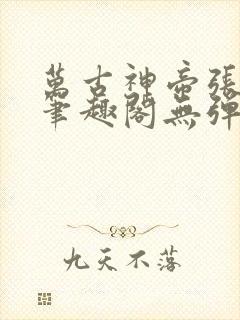 萬古神帝張
筆趣閣無彈
九天不落